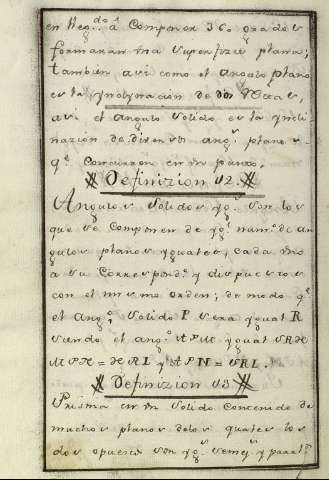 en Reg.do á Componer 360 grados
formaran una Superfizie plana;
tambien asi como el angulo plano
es la Ynclynazion de dos Rectas,
asi el angulo Solido es la Yncli-
nazion de diversos ang.s planos
q.e concurren en un punto.
Definizion 12.
Angulos Solidos yg.s son los
que se Componen de yg.l num.o de an
gulos planos yguales, cada uno
a su Correspond.te y dispuestos
con el mismo orden; de modo q.e
el ang.o Solido P sera ygual R
siendo el ang.o
= y = SRL,
Definizion 13
Prisma es un Solido Contenido de
muchos planos delos quales los
dos opuestos son yg.s semej.s y paral.s